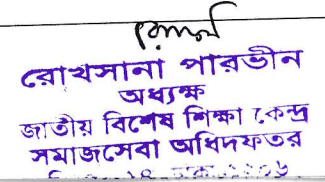 রোখসানা পারভীন
অধ্যক্ষ
জাতীয় বিশেষ শিক্ষা কেন্দ্র
সমাজসেবা অধিদফতর